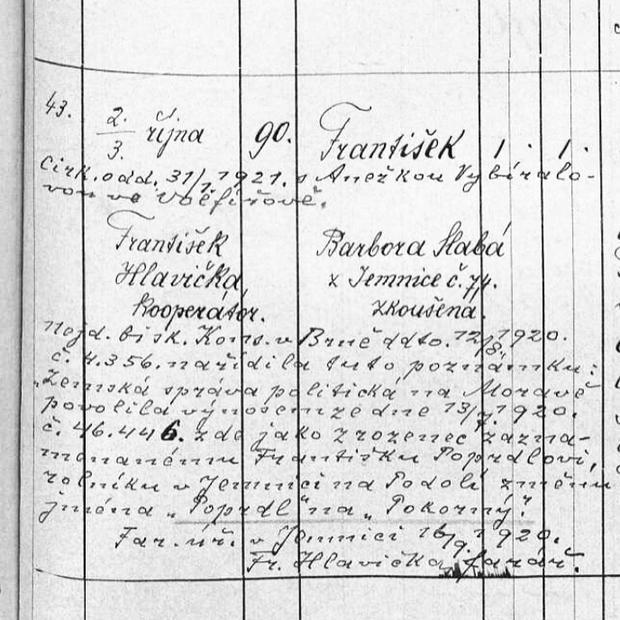 43.
2. října 90. František 1 . 1.
3.
cirk. odd. 31/1. 1921. s Anežkou Vybíralo-
vou ve Volfířově.
František Barbora Slabá
Hlavička, z Jemnice č. 74.
kooperátor. zkoušena.
Nejd. bisk. Kons. v Brně ddto. 12/8. 1920.
č. 4.356. nařídila tuto poznámku:
"Zemská správa politická na Moravě
povolila výnosem ze dne 13/7. 1920.
č. 46.446. zde jako zrozenec zazna-
menanému Františku Poprdlovi,
rolníku v Jemnici na Podolí změnu
jména „Poprdl" na „Pokorný".
Far. úř. v Jemnici 16/9. 1920.
Fr. Hlavička, farář.